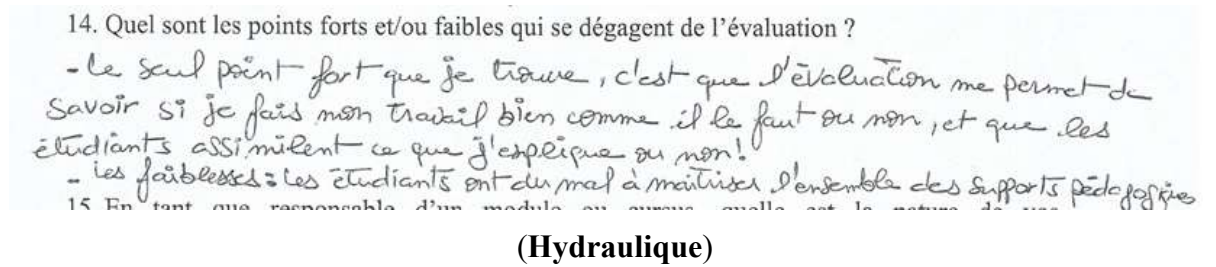 14. Quel sont les points forts et/ou faibles qui se dégagent de l'évaluation ?
- Le seul point fort que je trouve, c'est que l'évaluation me permet de
savoir si je fais mon travail bien comme il le faut ou non, et que les
étudiants assimilent ce que j'explique ou non!
- Les faiblesses : Les étudiants ont du mal à maîtriser l'ensemble des supports pédagogiques
15 En tant que responsable d'un module ou cursus, quelle est la nature de vos
(Hydraulique)